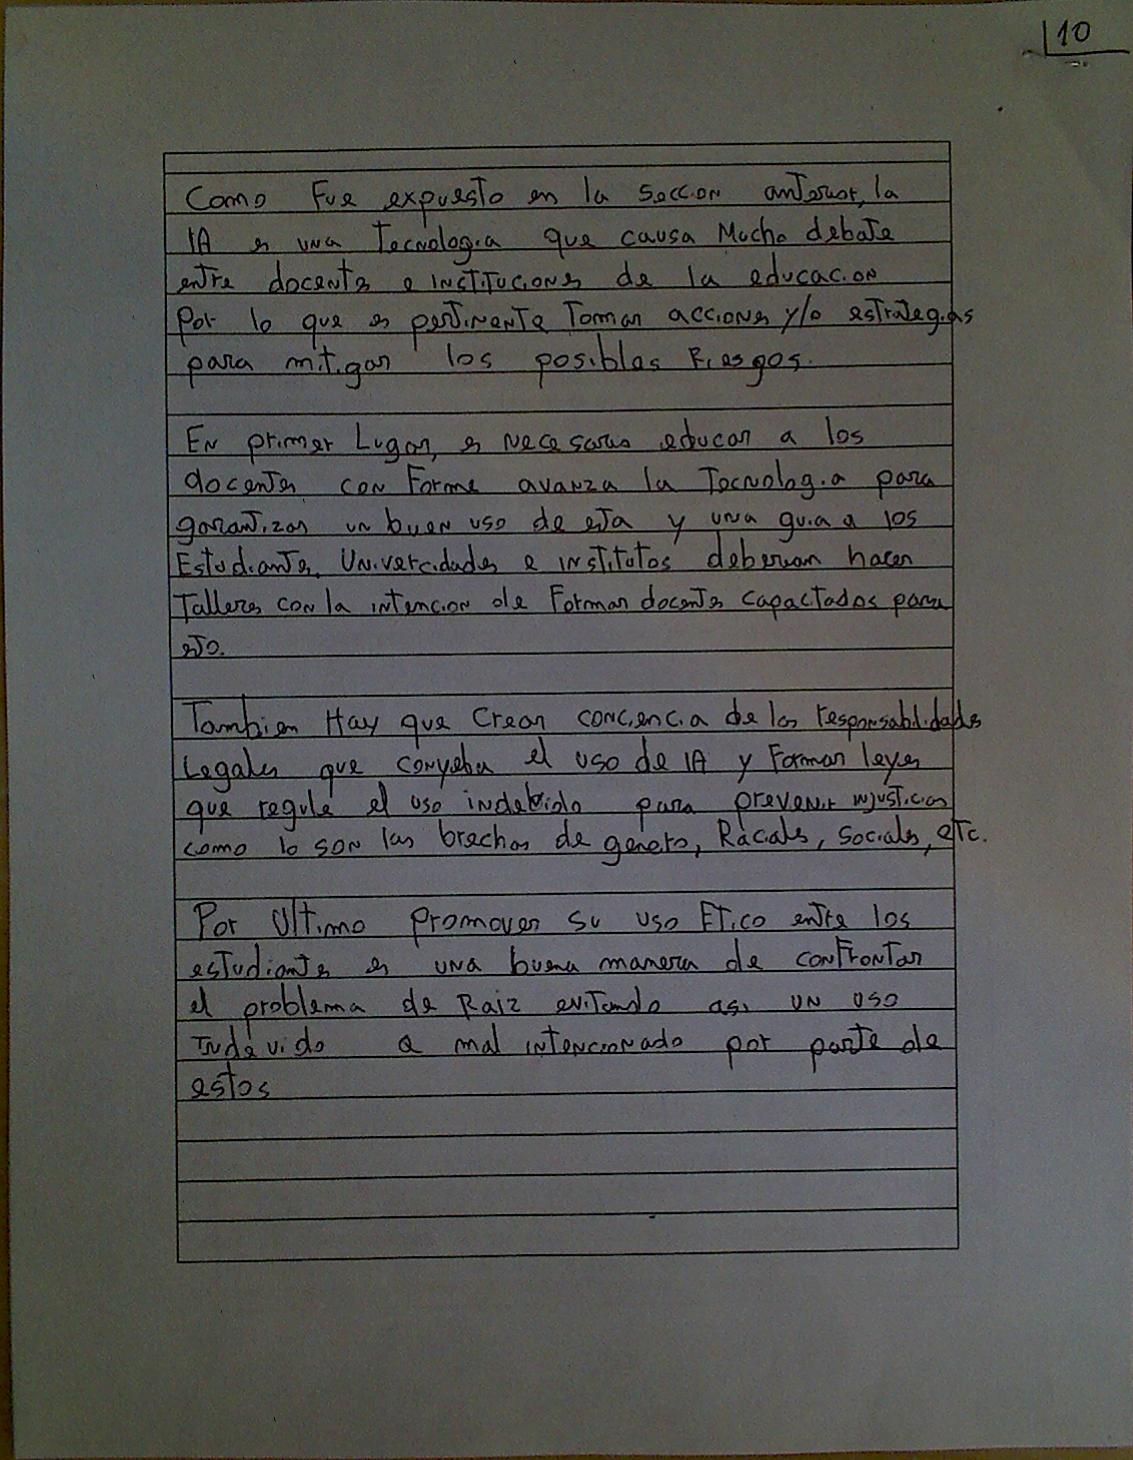 10
Como Fue expuesto en la Seccion anterior, la
IA es una Tecnologia que causa Mucho debate
entre docentes e instituciones de la educacion
Por lo que es pertinente Tomar acciones y/o estrategias
para mitigar los posibles Riesgos.
En primer Lugar, es necesario educar a los
docentes conforme avanza la Tecnologia para
garantizar un buen uso de esta y una guia a los
Estudiantes, Univercidades e institutos deberian hacer
Talleres con la intencion de Formar docentes capactados para
esto.
Tambien Hay que Crear conciencia de las responsabilidades
Legales que conyeba el uso de IA y Formar leyes
que regule el uso indebido para prevenir injusticias
como lo son las brechas de genero, Racales, Sociales, etc.
Por Ultimo Promover su uso Etico entre los
estudiantes es una buena manera de confrontar
el problema de Raiz evitando asi un uso
Indevido o mal intencionado por parte de
estos